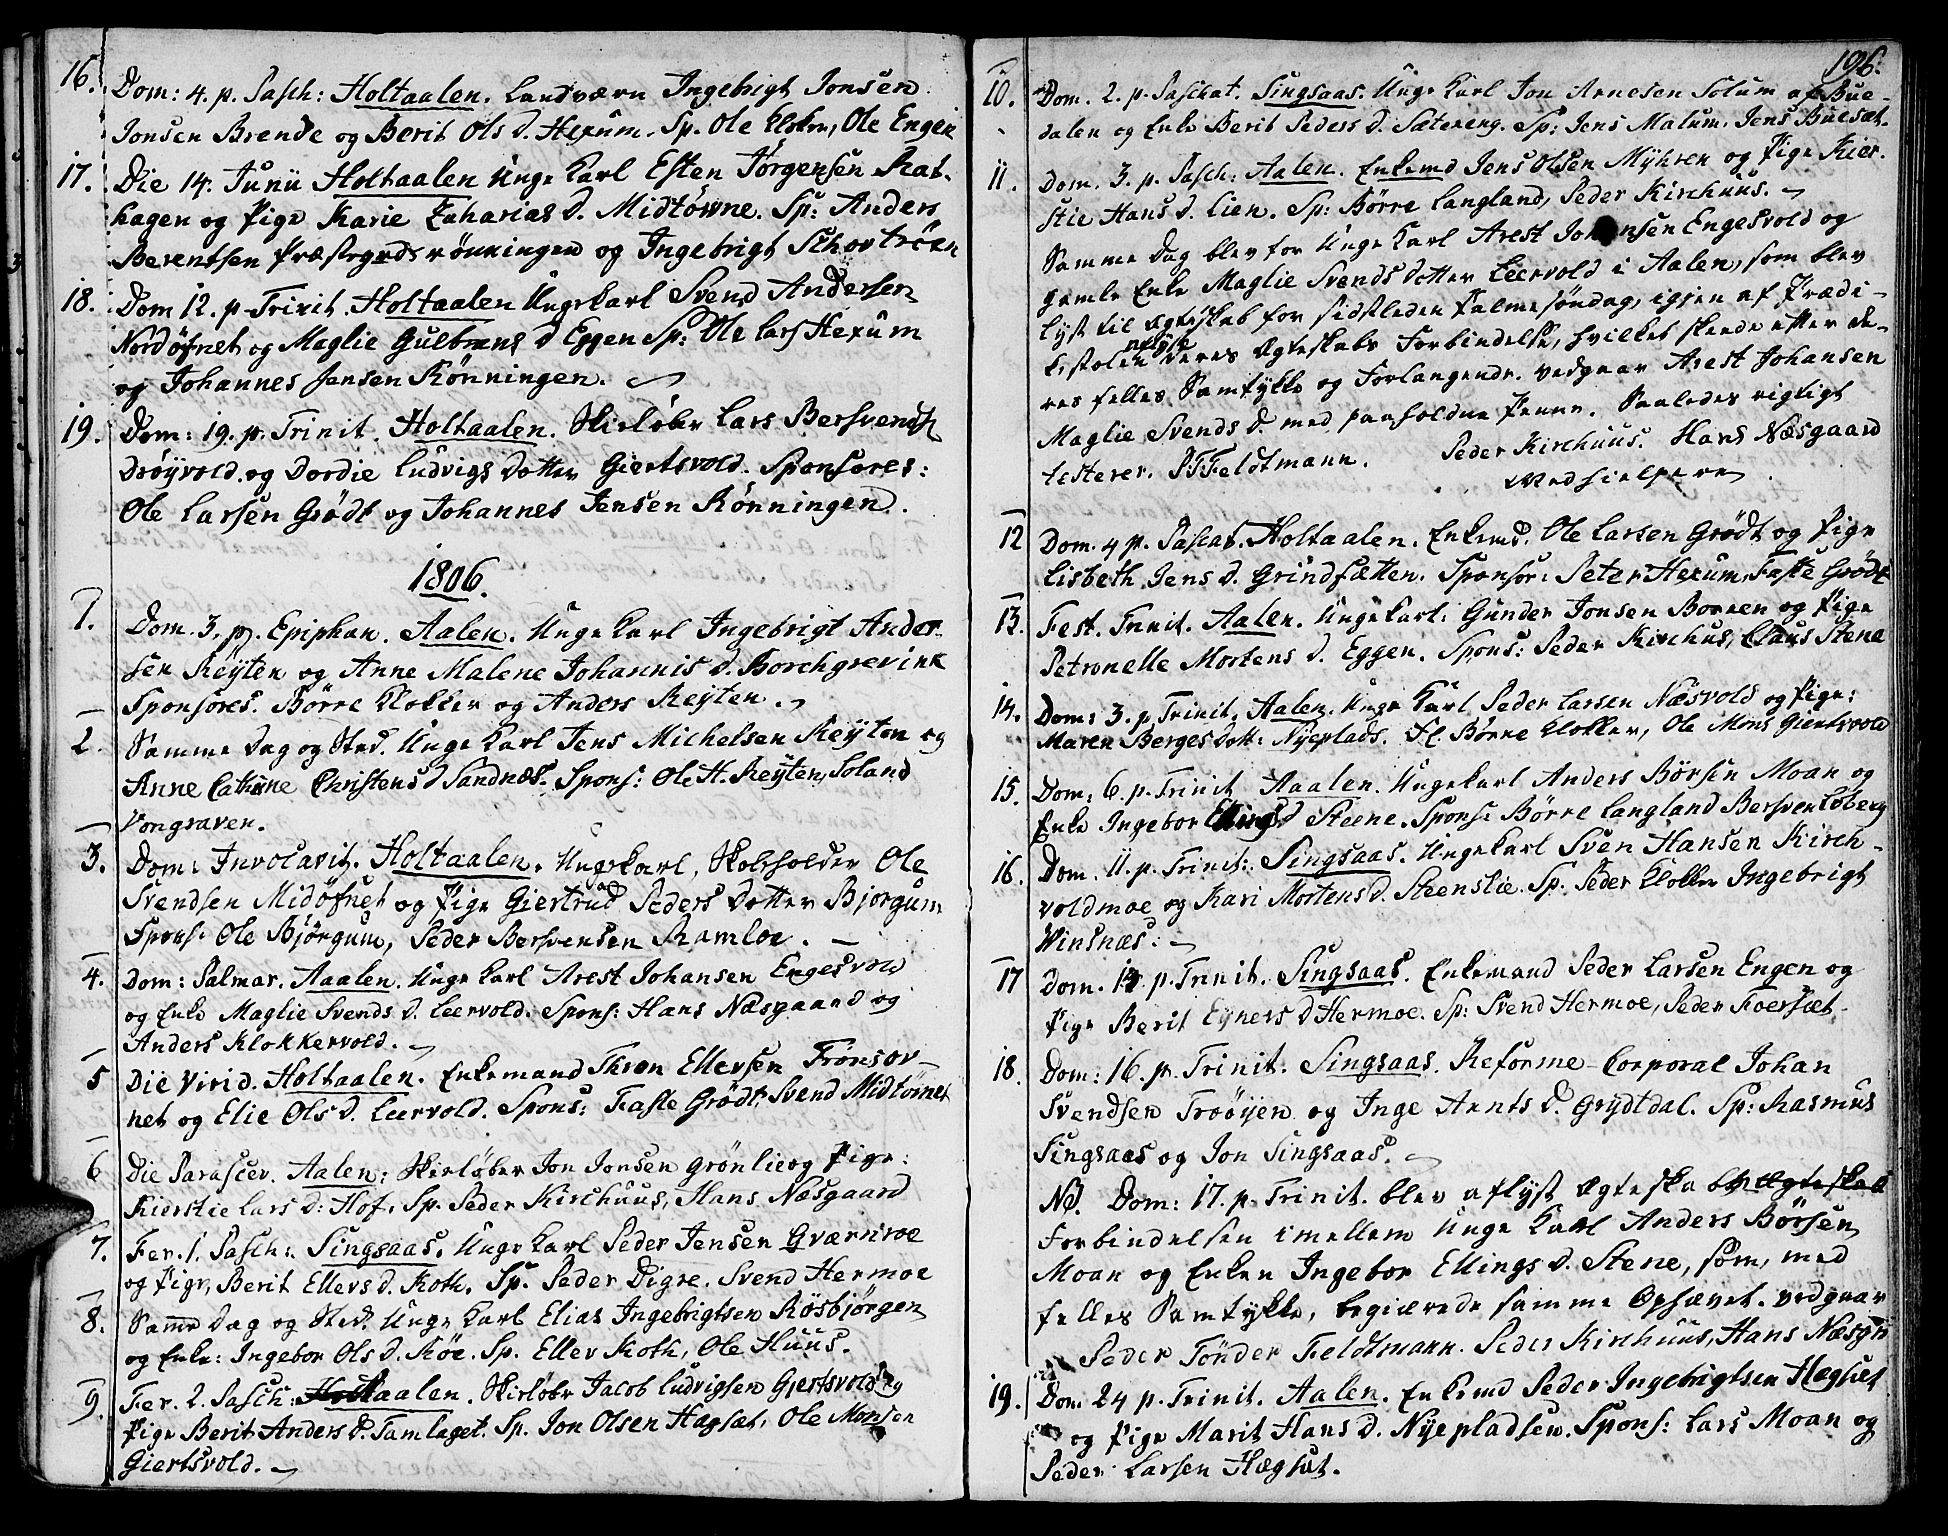 16. Dom: 4. p. Pasch: Holtaalen. Landværn Ingebrigt Jonsen
Jonsen Brende og Berit Ols D. Hexum. Sp. Ole Kloken, Ole Engen
17. Die 14. Junii Holtaalen Unge Karl Esten Jørgensen Kat-
hagen og Pige Karie Zacharias D. Midtøwne. Sp: Anders
Berentsen Præstegrdsrønningen og Ingebrigt Schovtrøen
18. Dom 12. p. Trinit. Holtaalen Ungekarl Svend Andersen
Nordøfnet og Maglie Gulbrans D Eggen Sp: Ole Lars Hexum
og Johannes Jensen Rønningen.
19. Dom: 19. p. Trinit. Holtaalen. Skieløber Lars Bersvends
Drøyvold. og Dordie Ludvigs Dotter Giertsvold. Sponsores:
Ole Larsen Grødt og Johannes Jensen Rønningen.
1806.
1. Dom. 3. p. Epiphan. Aalen. Unge Karl Ingebrigt Ander-
sen Reyten og Anne Malene Johannis D. Borchgrevink
Sponsores. Børre Klokker og Anders Reyten.
2. Samme Dag og Sted. Unge Karl Jens Michelsen Reyton og
Anne Cathrine Christens D Sandnæs. Spons: Ole H. Reyten, Soland
Vongraven.
3. Dom: Invocavit. Holtaalen. Ungekarl, Skoleholder Ole
Svendsen Midøfnet og Pige Giertrud Peders Dotter Bjorgum
Spons: Ole Bjørgum, Peder Bersvensen Ramloe.
4. Dom: Palmar. Aaalen. Unge Karl Arest Johansen Engesvold
og Enke Maglie Svends D. Leervold. Spons: Hans Næsgaard og
Anders Klokkervold.
5 Die Virid. Holtaalen. Enkemand Thron Ellevsen Trønsov-
net og Elie Ols D. Leervold. Spons: Faste Grødt, Svend Midtøvnet
6 Die Parascev. Aalen: Skieløber Jon Jonsen Grønlie og Pige:
Kierstie Lars D: Hof. Sp. Peder Kirchuus, Hans Næsgaard
7. Fer. 1. Pasch: Singsaas. Unge Karl Peder Jensen Gværnroe
og Pige, Berit Ellevs D. Koth. Sp. Peder Digre. Svend Hermoe
8. Samme Dag og Sted. Unge Karl Elias Ingebrigtsen Røsbjørgen
og Enke: Ingebor Ols D. Røe. Sp. Ellev Koth, Ole Huus.
9. Fer. 2. Pasch: Holtaalen. Skieløbr Jacob Ludvigsen Gjertsvold og
Pige Berit Anders D. Tamlaget. Sp. Jon Olsen Hagsæt, Ole Monsen
Giertsvold.
196.
10. Dom. 2. p. Paschat. Singsaas. Unge Karl Jon Arnesen Solum af Bue-
dalen og Enke Berit Peders D. Sætereng. Sp: Jens Malum. Jens Buesæt.
11. Dom. 3. p. Pasch: Aalen. Enkemd Jens Olsen Myhren og Pige Kier-
stie Hans D. Lien. Sp: Børre Langland, Peder Kirchuus.
Samme Dag blev for Unge Karl Arest Johansen Engesvold og
gamle Enke Maglie Svends Dotter Leervold i Aalen, som blev
lyst til Ægteskab for sidstleden Palmesøndag, igjen af Prædi-
kestolen deres Ægteskabs Forbindelse, hvilket skeede efter de-
res felles Samtykke og Forlangende. vedgaar Arest Johansen
Maglie Svends D med paaholdne Penne. Saaledes rigtigt
testerer. PTFeldtmann. Peder Kirchuus. Hans Næsgaard
Medhielpere
12 Dom. 4 p. Pascat. Holtaalen. Enkemd. Ole Larsen Grødt og Pige
Lisbeth Jens D. Grindsætten. Sponsor: Peter Hexum, Faste Grødt
13. Fest. Trinit. Aalen. Ungekarl. Gunder Jonsen Borren og Pige
Petronelle Mortens D. Eggen. Spons: Peder Kirchus, Claus Stene
14. Dom: 3. p. Trinit. Aalen. Unge Karl Peder Larsen Næsvold og Pige:
Maren Berges Dott: Nyeplads. Fl. Børre Klokker, Ole Mons Giertsvold
15. Dom: 6. p. Trinit Aaalen. Ungekarl Anders Børsen Moan og
Enke Ingebor Ellings D Steene. Spons: Børre Langland Bersven Løberg
16. Dom. 11. p. Trinit: Singsaas. Ungekarl Sven Hansen Kirch-
voldmoe og Kari Mortens D. Steenslie. Sp: Peder Klokker Ingebrigt
Winsnæs:
17 Dom. 14. p. Trinit. Singsaas. Enkemand Peder Larsen Engen og
Pige Berit Eyners D Hermoe. Sp: Svend Hermoe, Peder Foersæt
18. Dom: 16. p. Trinit: Singsaas. Reforme-Corporal Johan
Svendsen Troøyen og Inge Arnts D. Grydtdal. Sp: Rasmus
Singsaas og Jon Singsaas.
NB. Dom: 17. p. Trinit. blev aflyst Ægteskabs Ægteskab
Forbindelsen imellem Unge Karl Anders Børsen
Moan og Enken Ingebor Ellings D. Stene, som, med
felles Samtykke, begiærede samme Ophævet. vedgaar
Peder Tønder Feldtmann. Peder Kirchuus, Hans Næsgr
19. Dom. 24 p. Trinit. Aalen. Enkemd Peder Ingebrigtsen Hægsæt
og Pige Marit Hans D. Nyepladsen. Spons: Lars Moan og
Peder Larsen Hægsæt.